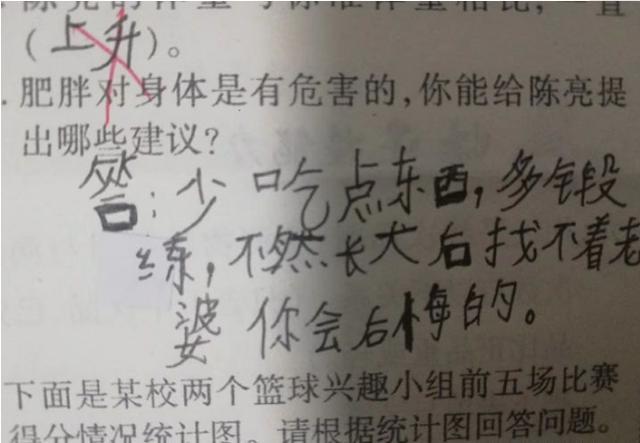 陈亮的体重与标准体重相比,一直
(上升)。
. 肥胖对身体是有危害的,你能给陈亮提
出哪些建议?
答:少吃点东西,多锻段
练,不然长大后找不着老
婆 你会后悔的。
下面是某校两个篮球兴趣小组前五场比赛
得分情况统计图。请根据统计图回答问题。